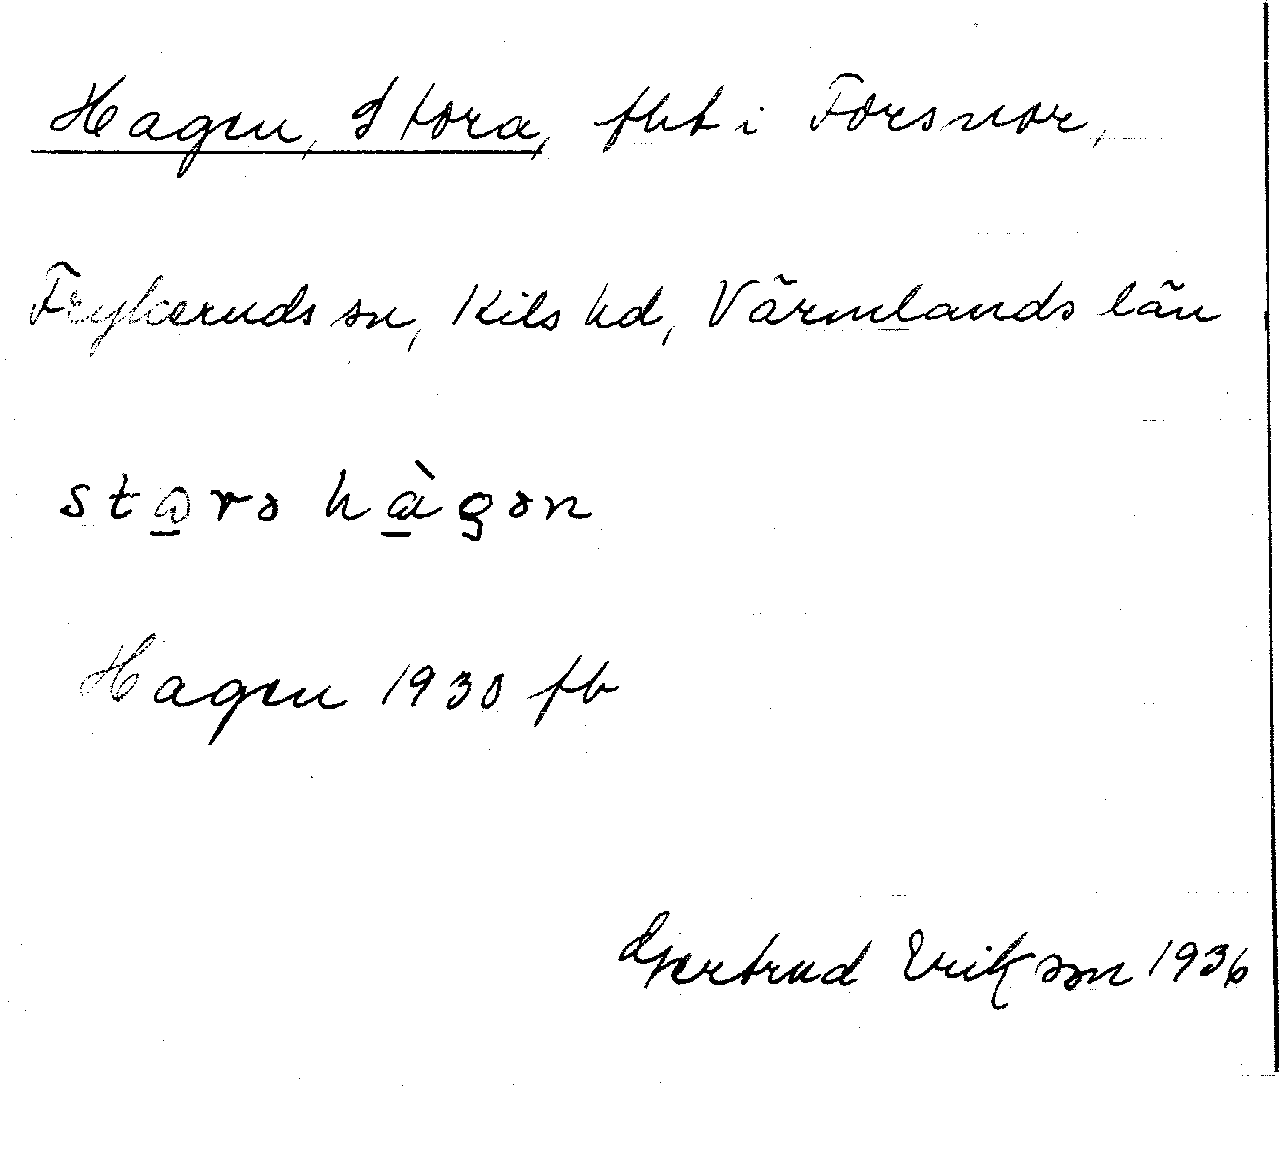 Hagen, Stora, fbt i Forsnor,
Frykeruds sn, Kils hd, Värmlands län
stɷrə hàgən
Hagen 1930 fb
Gertrud Erikson 1936